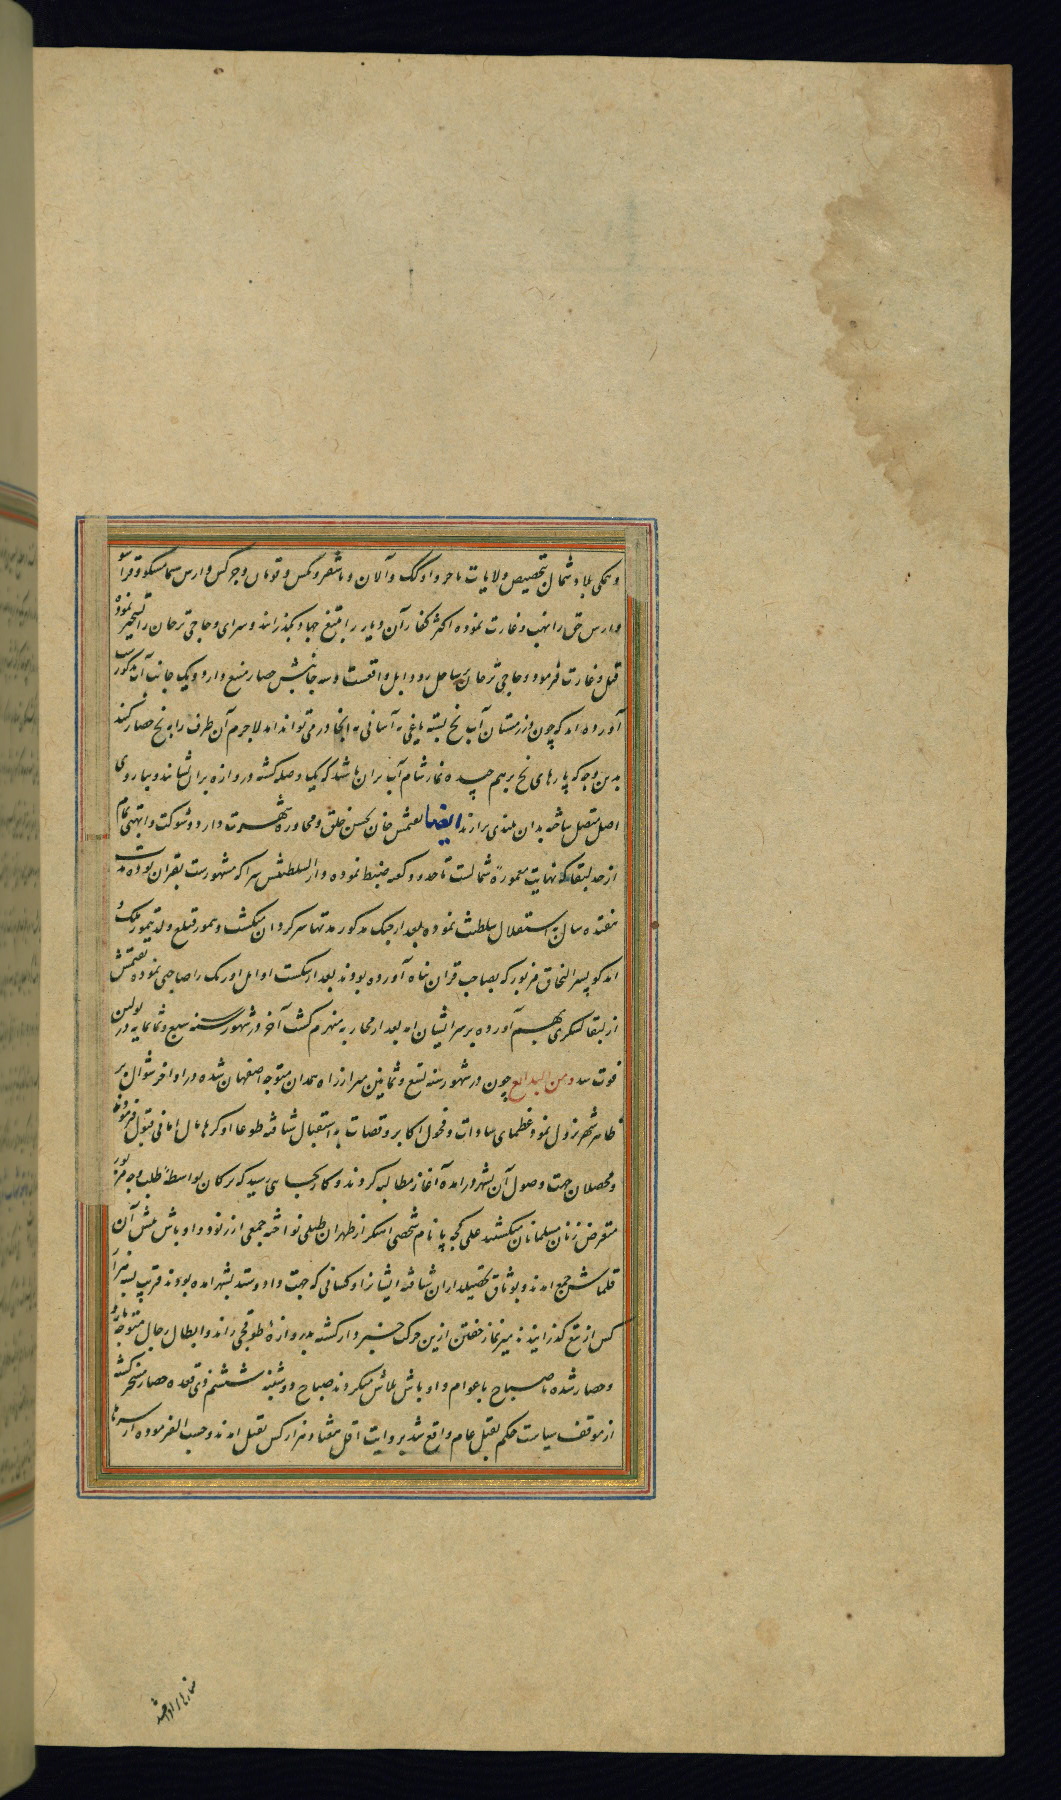 و همکی بلاد شمال بتخصیص ولایات ماجر و اوکک و آلان و باشقرد و مکس و تومان و چرکس و ارس سما مسکو و قرا
و ارس حق را نهب و غارت نموده اکثر کفار آن دیار را بتیغ جهاد بگذرانند و سرای و حاجی ترخان را تسخیر نموده
قتل و غارت فرمود و حاجی ترخان بر ساحل رود اتل واقعست و سه جانبش حصار منیع دارد و یک جانب آن
آورده اند که چون در زمستان آب یخ بسته یاغی به آسانی به انجا در می تواند امد لاجرم آن طرف را به یخ حصار کنند
بدین وجه که پارهای یخ برهم چیده نماز شام آب بران پاشند که یک وصله کشته دروازه بران نشانند و بباروی
اصل متصل ساخته بدان بلندی برارند ایضا تقتمش خان بحسن خلق و محاوره شهرت دارد و شوکت و ابهتی تمام
از حد لبقا که نهایت معموره شمالست تا حدود کفه ضبط نموده و دار السلطنتش سرا که مشهورست بقران بوده مدت
هفتده سال به استقلال سلطنت نموده بعد از جنک مذکور مدتها سرکردان میکشت و تمور قتلغ ولد تیمور ملک
اند کو پسر النخاق مزبور که بصاحب قران پناه آورده بودند بعد از شکست اوایل اورنک را صاحبی نموده تقتمش
از لبقا لشکری بهم آورده بر سر ایشان امد بعد از محاربه منهزم کشت آخر در شهور سنه سبع و ثمانمایه در تولین
فوت شد و من البدایع چون در شهور سنه تسع و ثمانین میرزا از راه همدان متوجه اصفهان شده در اواخر شوال بر
ظاهر شهر نزول نمود عظمای سادات و فحول اکابر و قضات به استقبال شتافته طوعا او کرها مال امانی قبول فرموده
و محصلان جهت وصول آن بشهر درامده آغاز مطالبه کردند و کار بجایی رسید که ترکان بواسطه طلب وجه مزبور
متعرض زنان مسلمانان میکشتند علی کجه پا نام شخصی اهنکر از طهران طبلی نواخته جمعی از رنود و اوباش مثل آن
قلماش جمع امدند و بوثاق تحصیلداران شتافته ایشانرا و کسانی که جهت داد و ستد بشهر امده بودند قریب بسه هزار
کس از تیغ گذرانیدند میرزا نماز خفتن ازین حرکت خبردار کشته بدروازه طوقچی راند و ابطال رجال متوجه باره
و حصار شده تا صباح با عوام و اوباش تلاش میکردند صباح دوشنبه ششم ذی قعده حصار مسخر کشته
از موقف سیاست حکم بقتل عام واقع شد بروایت اقل هفتاد هزار کس بقتل امدند و حسب الفرموده از سرها
منارها برافراشتند